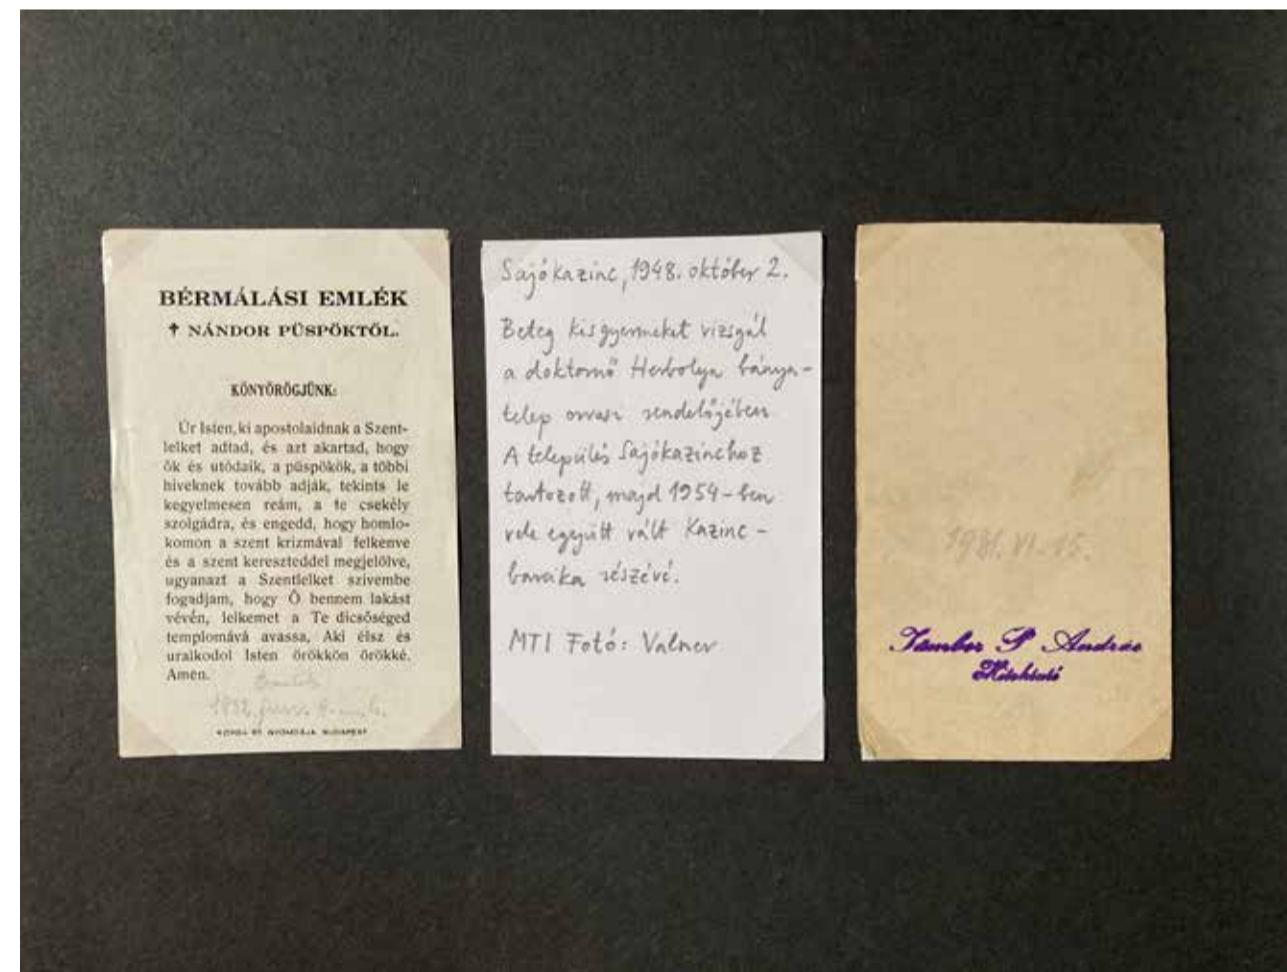 BÉRMÁLÁSI EMLÉK
† NÁNDOR PÜSPÖKTŐL.
KÖNYÖRÖGJÜNK:
Úr Isten, ki apostolaidnak a Szent-
lelket adtad, és azt akartad, hogy
ők és utódaik, a püspökök, a többi
híveknek tovább adják, tekints le
kegyelmesen reám, a te csekély
szolgádra, és engedd, hogy homlo-
komon a szent krizmával felkenve
és a szent kereszteddel megjelölve,
ugyanazt a Szentlelket szivembe
fogadjam, hogy Ő bennem lakást
vévén, lelkemet a Te dicsőséged
templomává avassa, Aki élsz és
uralkodol Isten örökkön örökké.
Amen.
NYOMDÁJA BUDAPEST
Sajókazinc, 1948. október 2.
Beteg kisgyermeket vizsgál
a doktornő Herbolya bánya-
telep orvosi rendelőjében
A település Sajókazinchoz
tartozott, majd 1954-ben
vele együtt vált Kazinc-
barcika részévé.
MTI Fotó: Valner
VI. 15.
P András
Hitoktató